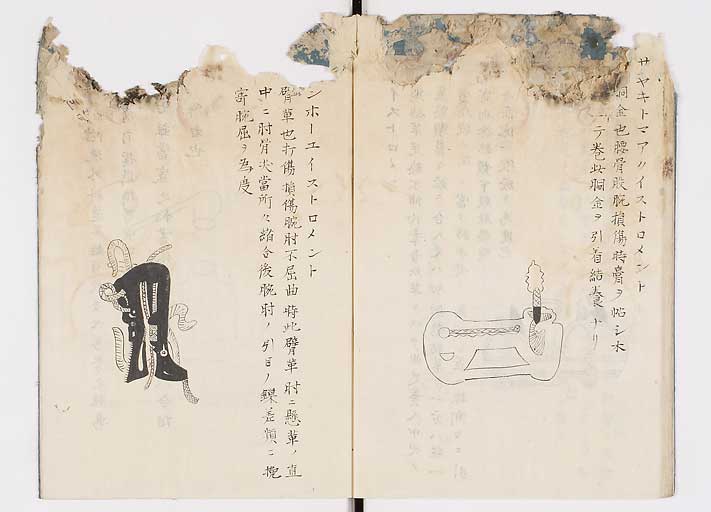 サヤキトマアハイストロメント
胴金也腰骨股腕損傷時膏ヲ帖シ木
ニテ巻此胴金ヲ引着結巻ナリ
ンホーユイストロメント
臂革也打傷損傷腕肘不屈曲時此臂革肘ニ懸革ノ直
中ニ肘骨尖當所々緒合後腕肘ノ引目ノ鏁差
寄腕屈ヲ為度